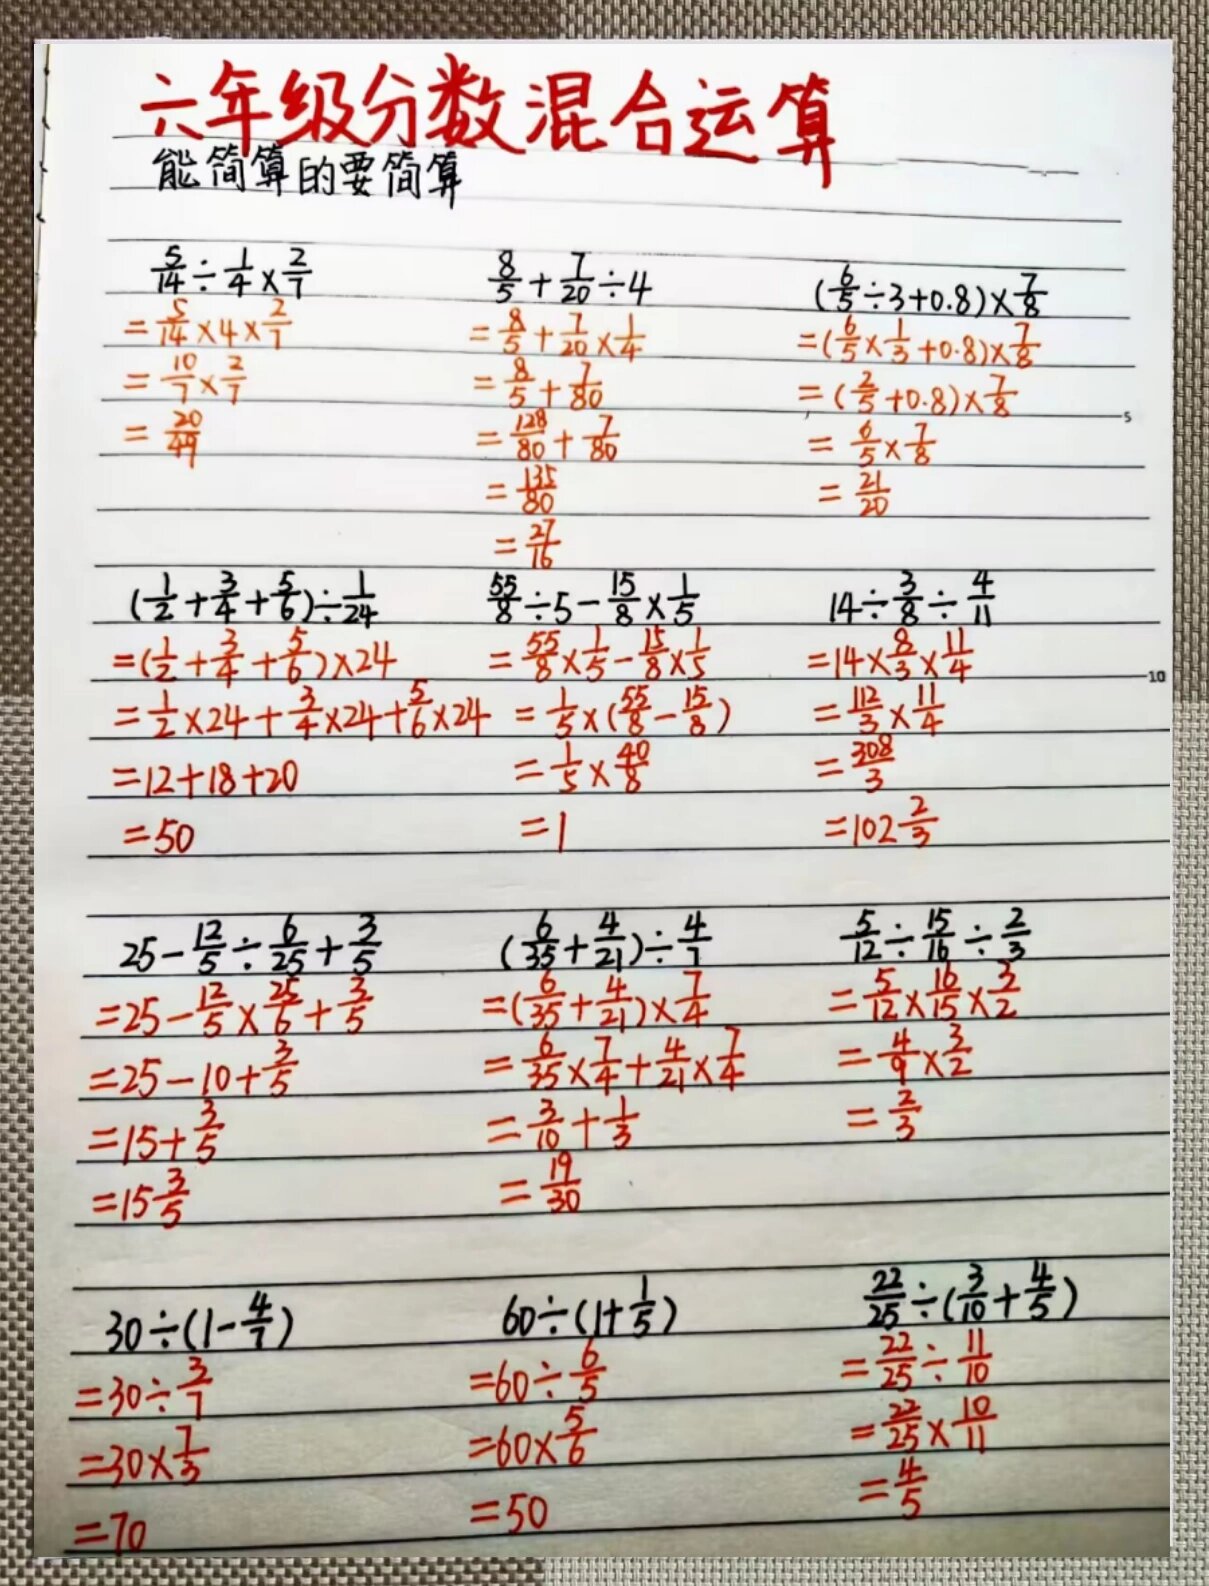 六年级分数混合运算
能简算的要简算
5/14÷1/4×2/7
=5/14×4×2/7
=10/7×2/7
=20/49
8/5+7/20÷4
=8/5+7/20×1/4
=8/5+7/80
=128/80+7/80
=135/80
=27/16
(6/5÷3+0.8)×7/8
=(6/5×1/3+0.8)×7/8
=(2/5+0.8)×7/8
=6/5×7/8
=21/20
5
(1/2+3/4+5/6)÷1/24
=(1/2+3/4+5/6)×24
=1/2×24+3/4×24+5/6×24
=12+18+20
=50
55/8÷5-15/8×1/5
=55/8×1/5-15/8×1/5
=1/5×(55/8-15/8)
=1/5×40/8
=1
14÷3/8÷4/11
=14×8/3×11/4
=112/3×11/4
=308/3
=102 2/3
10
25-12/5÷6/25+3/5
=25-12/5×25/6+3/5
=25-10+3/5
=15+3/5
=15 3/5
(6/35+4/21)÷4/7
=(6/35+4/21)×7/4
=6/35×7/4+4/21×7/4
=3/10+1/3
=19/30
5/12÷15/16÷2/3
=5/12×16/15×3/2
=4/9×3/2
=2/3
30÷(1-4/7)
=30÷3/7
=30×7/3
=70
60÷(1+1/5)
=60÷6/5
=60×5/6
=50
22/25÷(3/10+4/5)
=22/25÷11/10
=22/25×10/11
=4/5